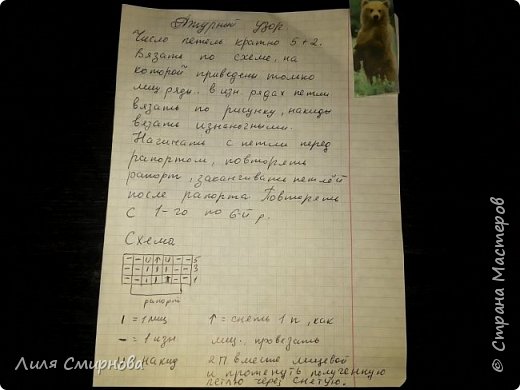 Ажурный узор
Число петель кратно 5+2.
Вязать по схеме, на
которой приведены только
лиц. ряды. в изн. рядах петли
вязать по рисунку, накиды
вязать изнаночными.
Начинать с петли перед
рапортом, повторять
рапорт, заканчивать петлёй
после рапорта Повторять
с 1-го по 6-й р.
Схема
- - U ↑ U - - 5
- - I I I - - 3
- - I I I - - 1
рапорт
I = 1 лиц ↑ = снять 1 п, как
- = 1 изн лиц., провязать
накид 2 П вместе лицевой
и протянуть полученную
петлю через снятую.
Лиля Смирнова
© Страна Мастеров